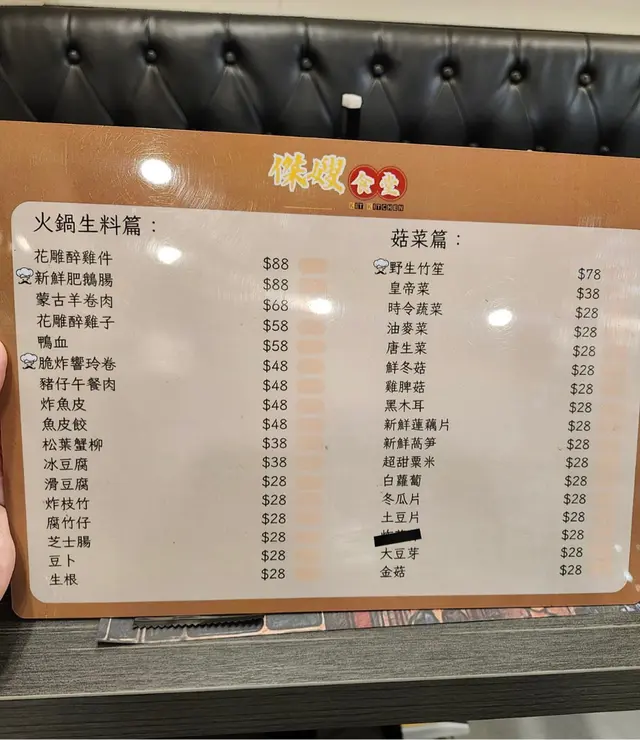 傑嫂食堂
KIT KITCHEN
火鍋生料篇：
花雕醉雞件 $88
新鮮肥鵝腸 $88
蒙古羊卷肉 $68
花雕醉雞子 $58
鴨血 $58
脆炸響玲卷 $48
豬仔午餐肉 $48
炸魚皮 $48
魚皮餃 $48
松葉蟹柳 $38
冰豆腐 $38
滑豆腐 $28
炸枝竹 $28
腐竹仔 $28
芝士腸 $28
豆卜 $28
生根 $28
菇菜篇：
野生竹笙 $78
皇帝菜 $38
時令蔬菜 $28
油麥菜 $28
唐生菜 $28
鮮冬菇 $28
雞脾菇 $28
黑木耳 $28
新鮮蓮藕片 $28
新鮮萵笋 $28
超甜粟米 $28
白蘿蔔 $28
冬瓜片 $28
土豆片 $28
$28
大豆芽 $28
金菇 $28